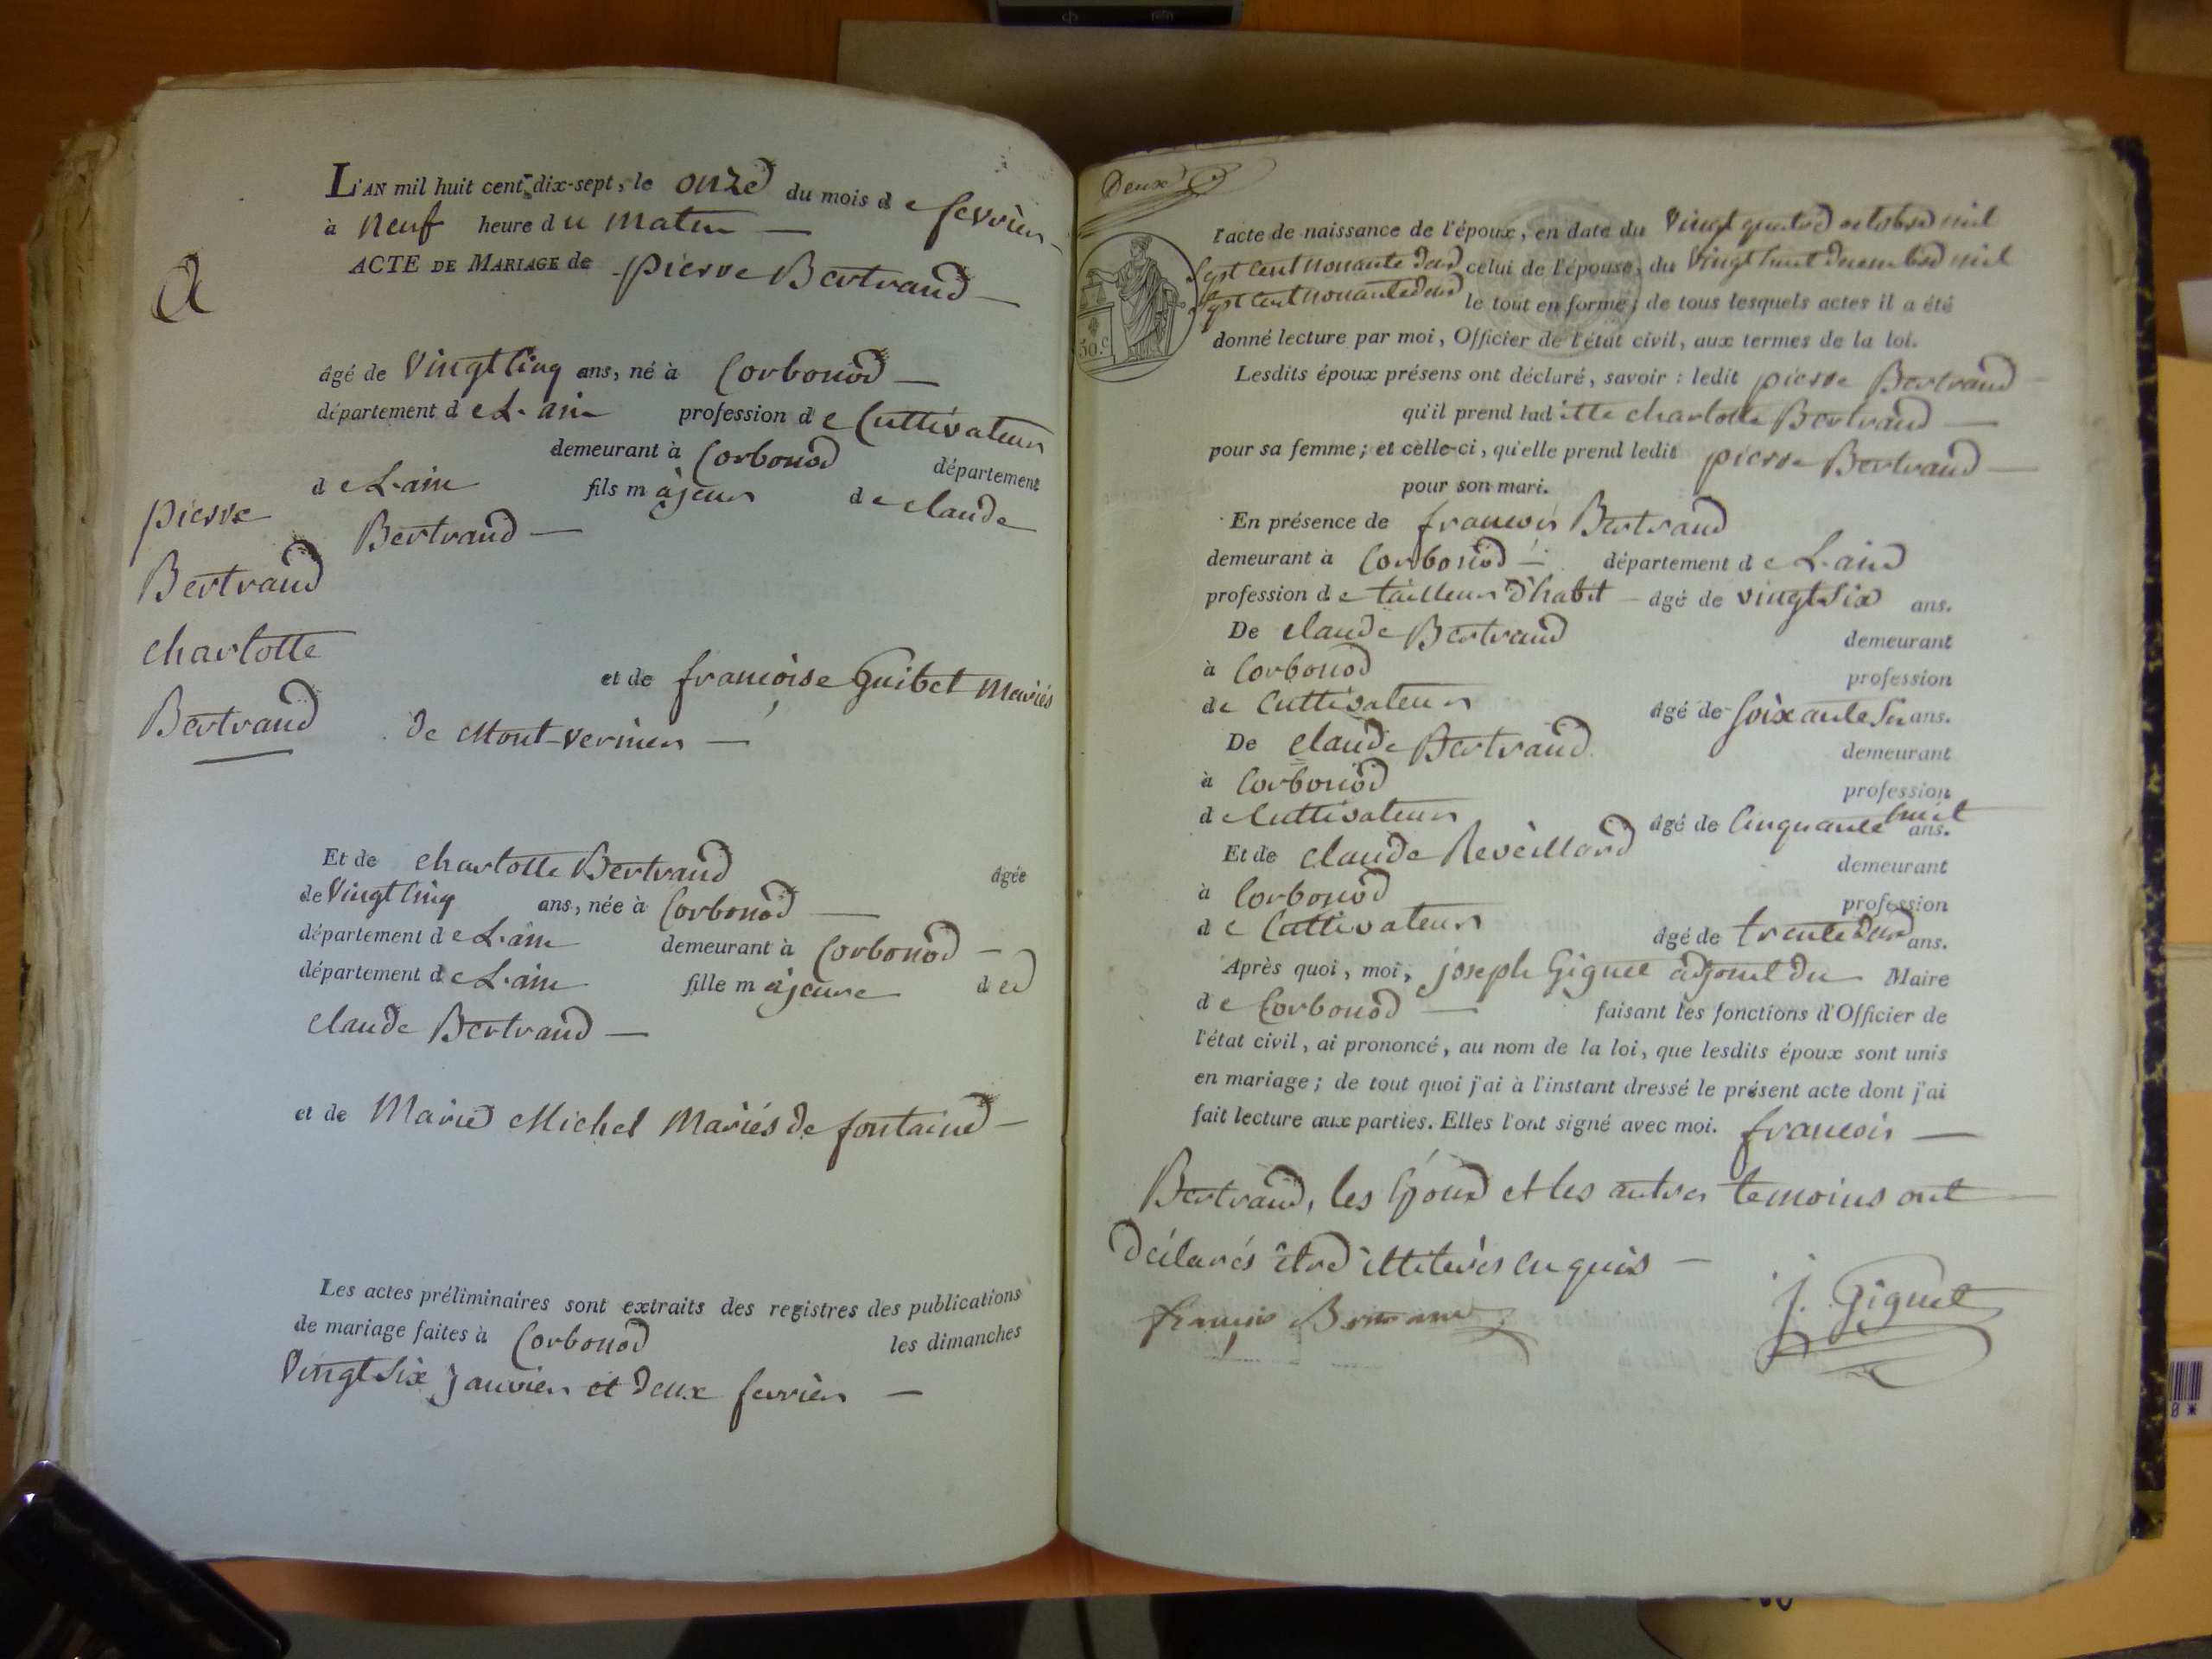 L'AN mil huit cent dix-sept, le onze du mois de fevrier
à neuf heure du matin —
ACTE DE MARIAGE de pierre Bertrand —
âgé de vingt cinq ans, né à Corbonod —
département de L'ain profession de Cultivateur
demeurant à Corbonod département
de L'ain fils majeur de claude
Bertrand —
pierre
Bertrand
charlotte
Bertrand
et de francoise Guibet Mariés
de Mont-vernier —
Et de charlotte Bertrand âgée
de vingt cinq ans, née à Corbonod —
département de L'ain demeurant à Corbonod —
département de L'ain fille majeure de
claude Bertrand —
et de Marie Michel Mariés de fontaine —
Les actes préliminaires sont extraits des registres des publications
de mariage faites à Corbonod les dimanches
vingt six janvier et deux fevrier —
Deux
l'acte de naissance de l'époux, en date du vingt quatre octobre mil
sept cent nonante deux celui de l'épouse, du vingt huit decembre mil
sept cent nonante deux le tout en forme; de tous lesquels actes il a été
50.c
donné lecture par moi, Officier de l'état civil, aux termes de la loi.
Lesdits époux présens ont déclaré, savoir : ledit pierre Bertrand —
qu'il prend laditte charlotte Bertrand —
pour sa femme; et celle-ci, qu'elle prend ledit pierre Bertrand —
pour son mari.
En présence de francois Bertrand
demeurant à Corbonod — département de L'ain
profession de tailleur d'habit — âgé de vingt six ans.
De claude Bertrand demeurant
à Corbonod profession
de Cultivateur âgé de soixante ans.
De claude Bertrand demeurant
à Corbonod profession
de Cultivateur âgé de Cinquante huit ans.
Et de claude Reveillard demeurant
à Corbonod profession
de Cultivateur âgé de trente deux ans.
Après quoi, moi, joseph Giguet adjoint du Maire
de Corbonod — faisant les fonctions d'Officier de
l'état civil, ai prononcé, au nom de la loi, que lesdits époux sont unis
en mariage; de tout quoi j'ai à l'instant dressé le présent acte dont j'ai
fait lecture aux parties. Elles l'ont signé avec moi. francois —
Bertrand, les Epoux et les autres temoins ont
déclarés être illiterés enquis —
françois Bertrand J. Giguet